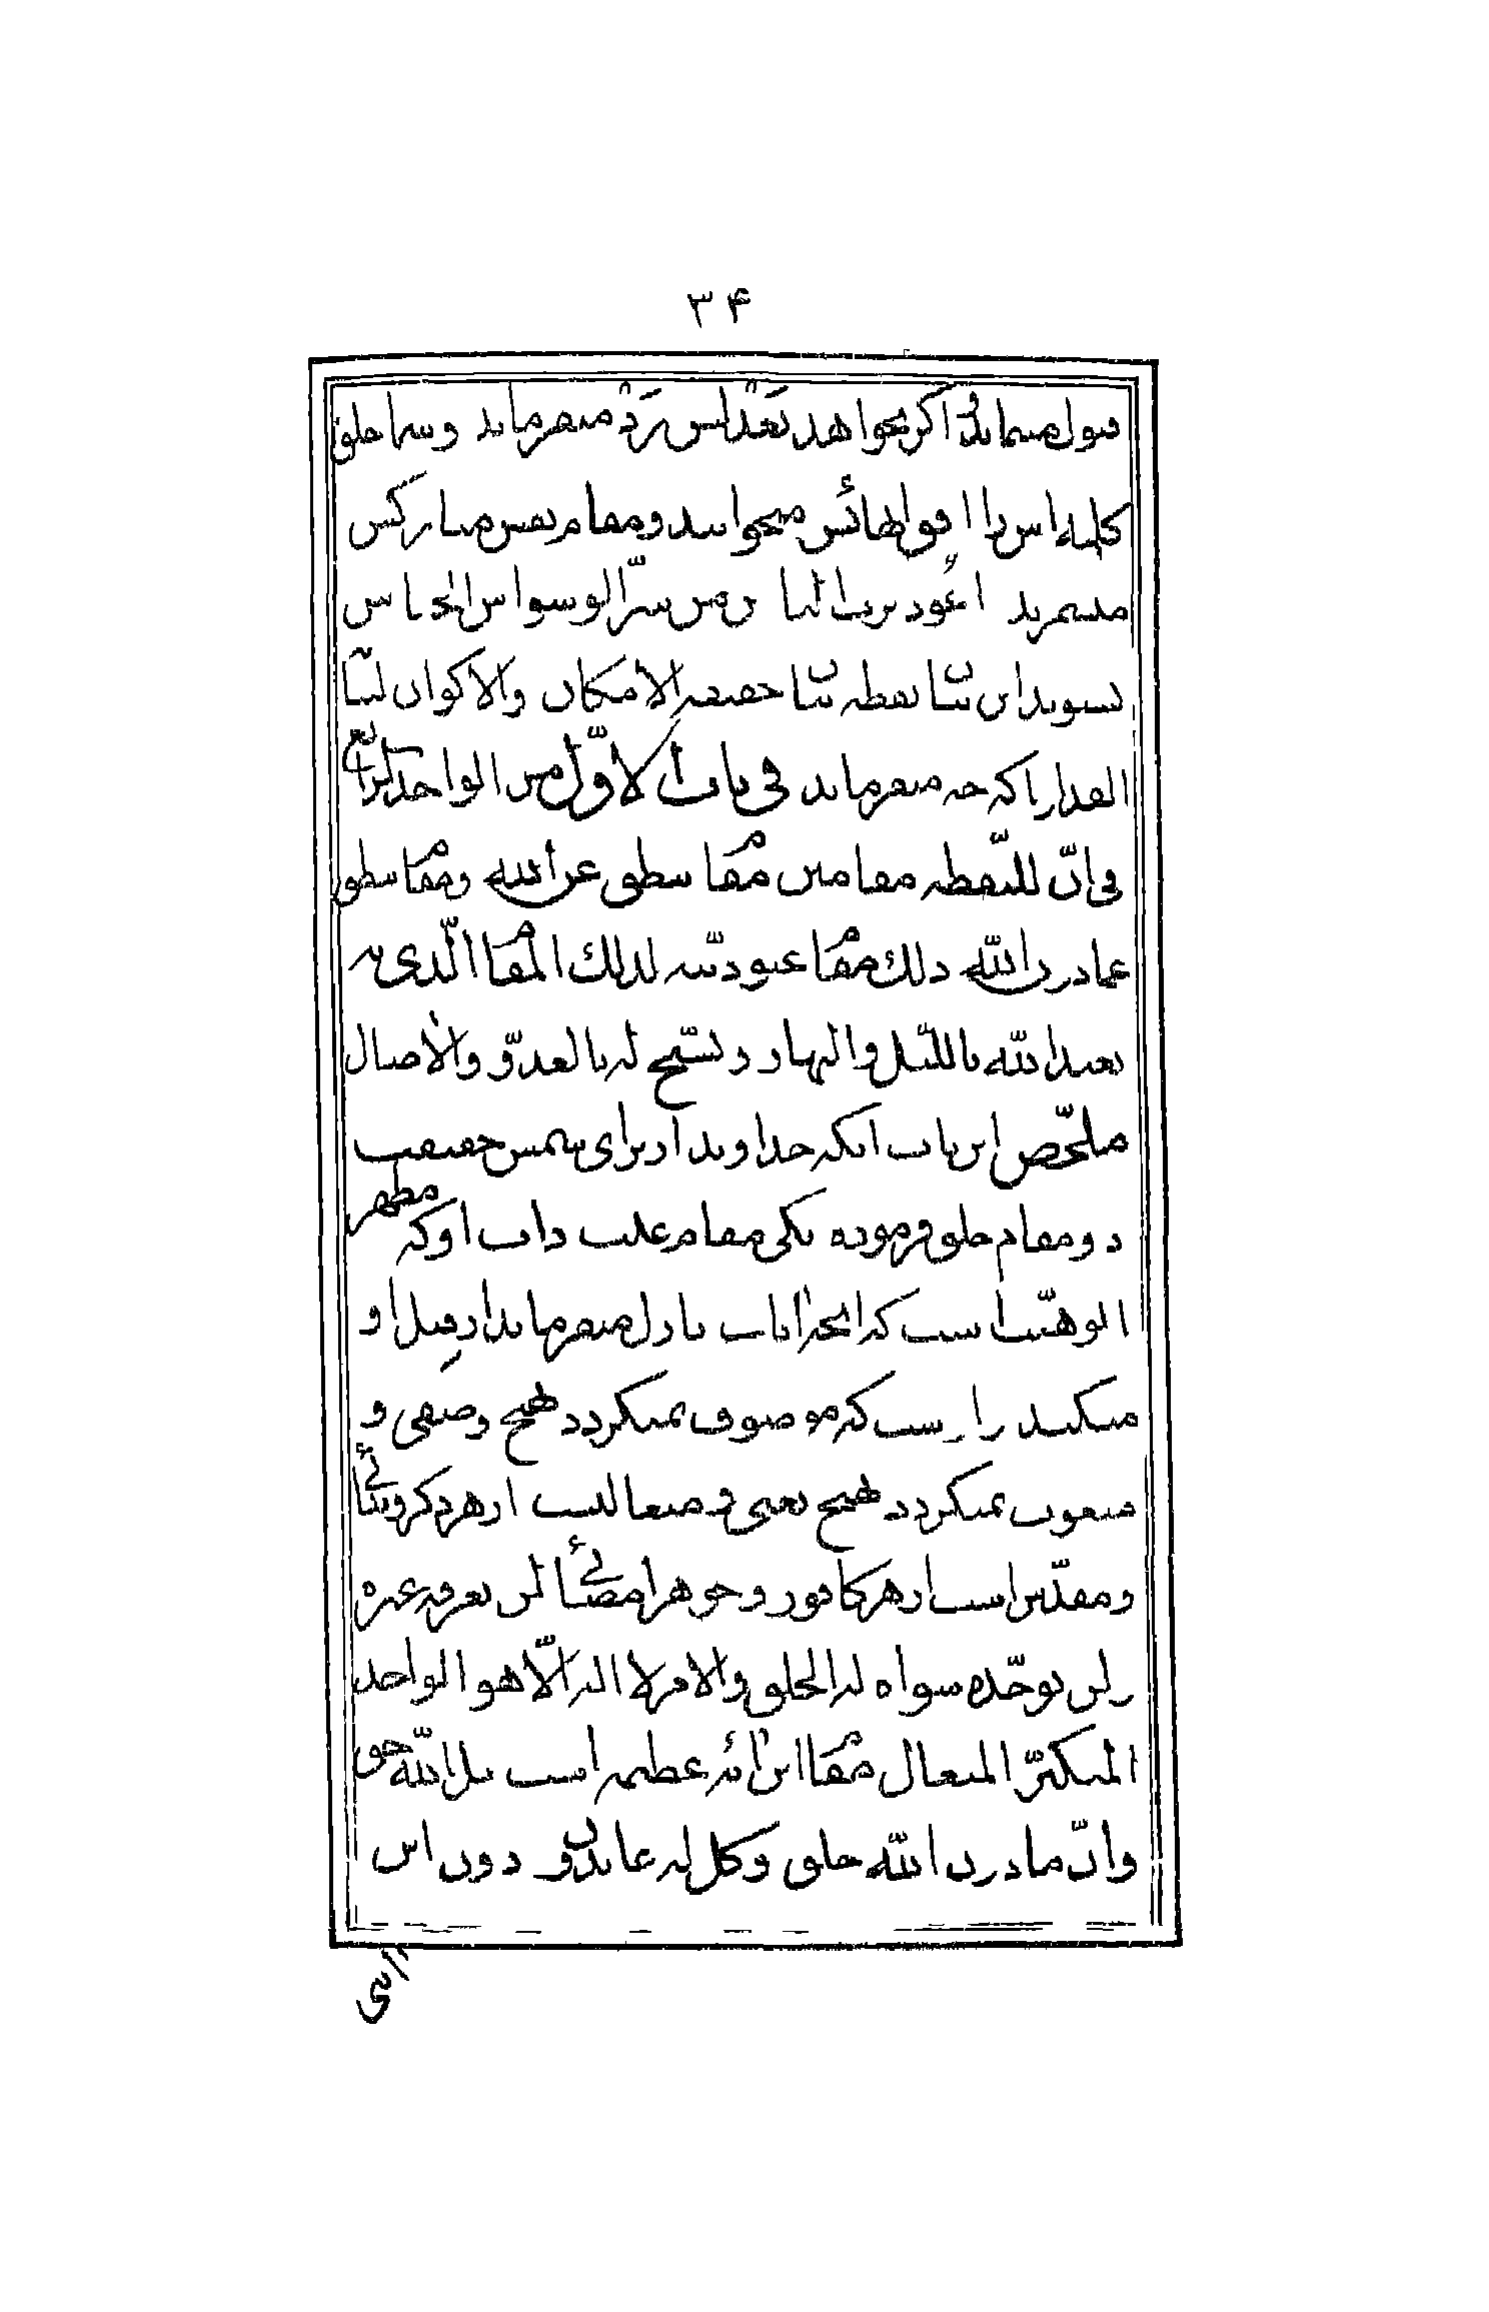 ۳۴
قبول مینمایند و اگر بخواهد بقدرتش رد میفرماید و شما خلق
کلمه‌اش را افواهاً میخوانید و مقام نفس مبارکش
میشمرید اعوذ برب الناس من شرّ الوسواس الخناس
بشنوید این بیان نقطه بیان حقیقة الامکان والاکوان لسان
القدار را که چه میفرماید فی باب الاوّل من الواحد الرابع
فی انّ للنّقطه مقامین مقام ینطق عن الله و مقام ینطق
عمادون الله ذلک مقام عبودیّته لذلک المقام الّذی به
یعبد الله باللّیل والنهار و یسبّح له بالغدوّ والأصال
ملخّص این باب انکه خداوند از برای شمس حقیقت
دو مقام خلق فرموده یکی مقام غیب ذات او که مظهر
الوهیّت است که انچه ایات نازل میفرماید از قبل او
میکند و است که موصوف نمیگردد بهیچ وصفی و
منعوت نمیگردد بهیچ نعتی و متعالیست از هر ذکر و ثنائی
و مقدّس است از هر کافور و جوهر امضائی لن یعرفه غیره
ولن یوحّده سواه له الخلق والامر لا اله الّا هو الواحد
المتکبّر المتعال مقام این ایه عظیمه است بل الله حق
وانّ مادون الله خلق وکل له عابدون و دون این
ایتی